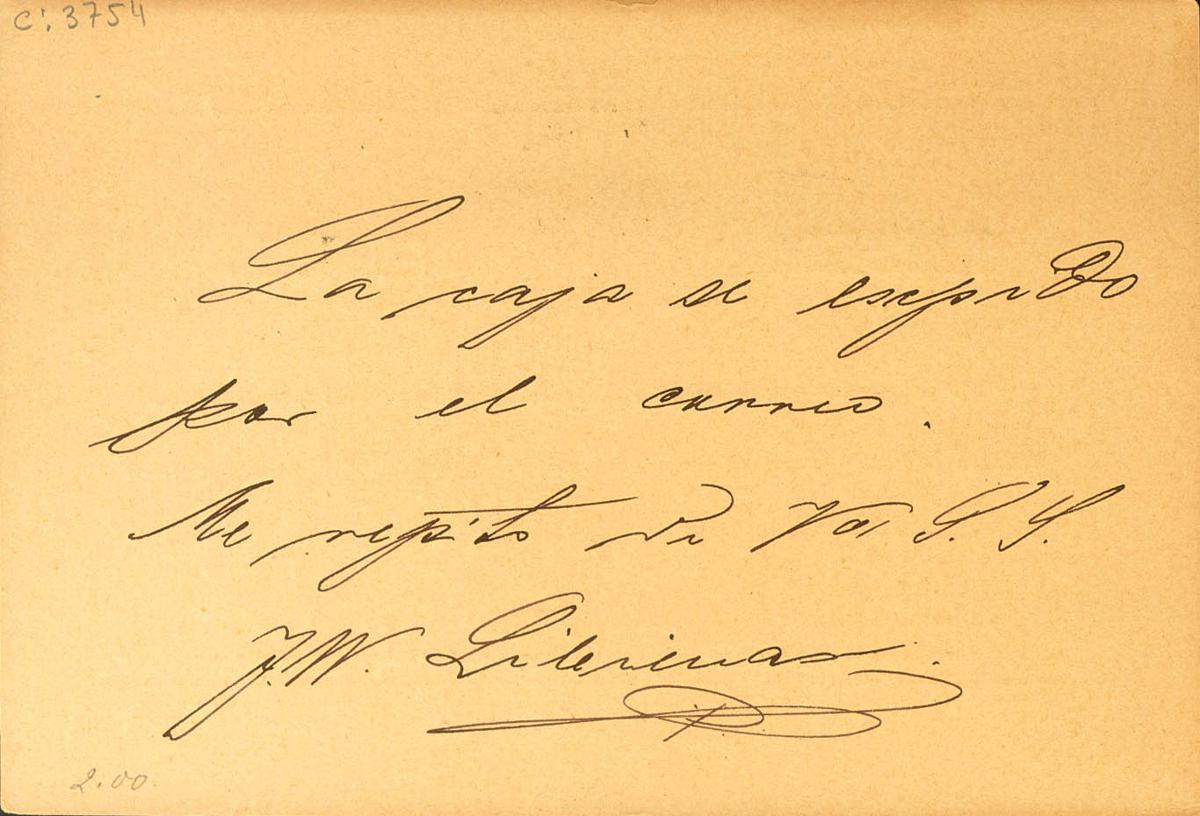 C: 3754
La caja se expido
por el correo.
Me repito de Vd S. S.
J. W.
2.00